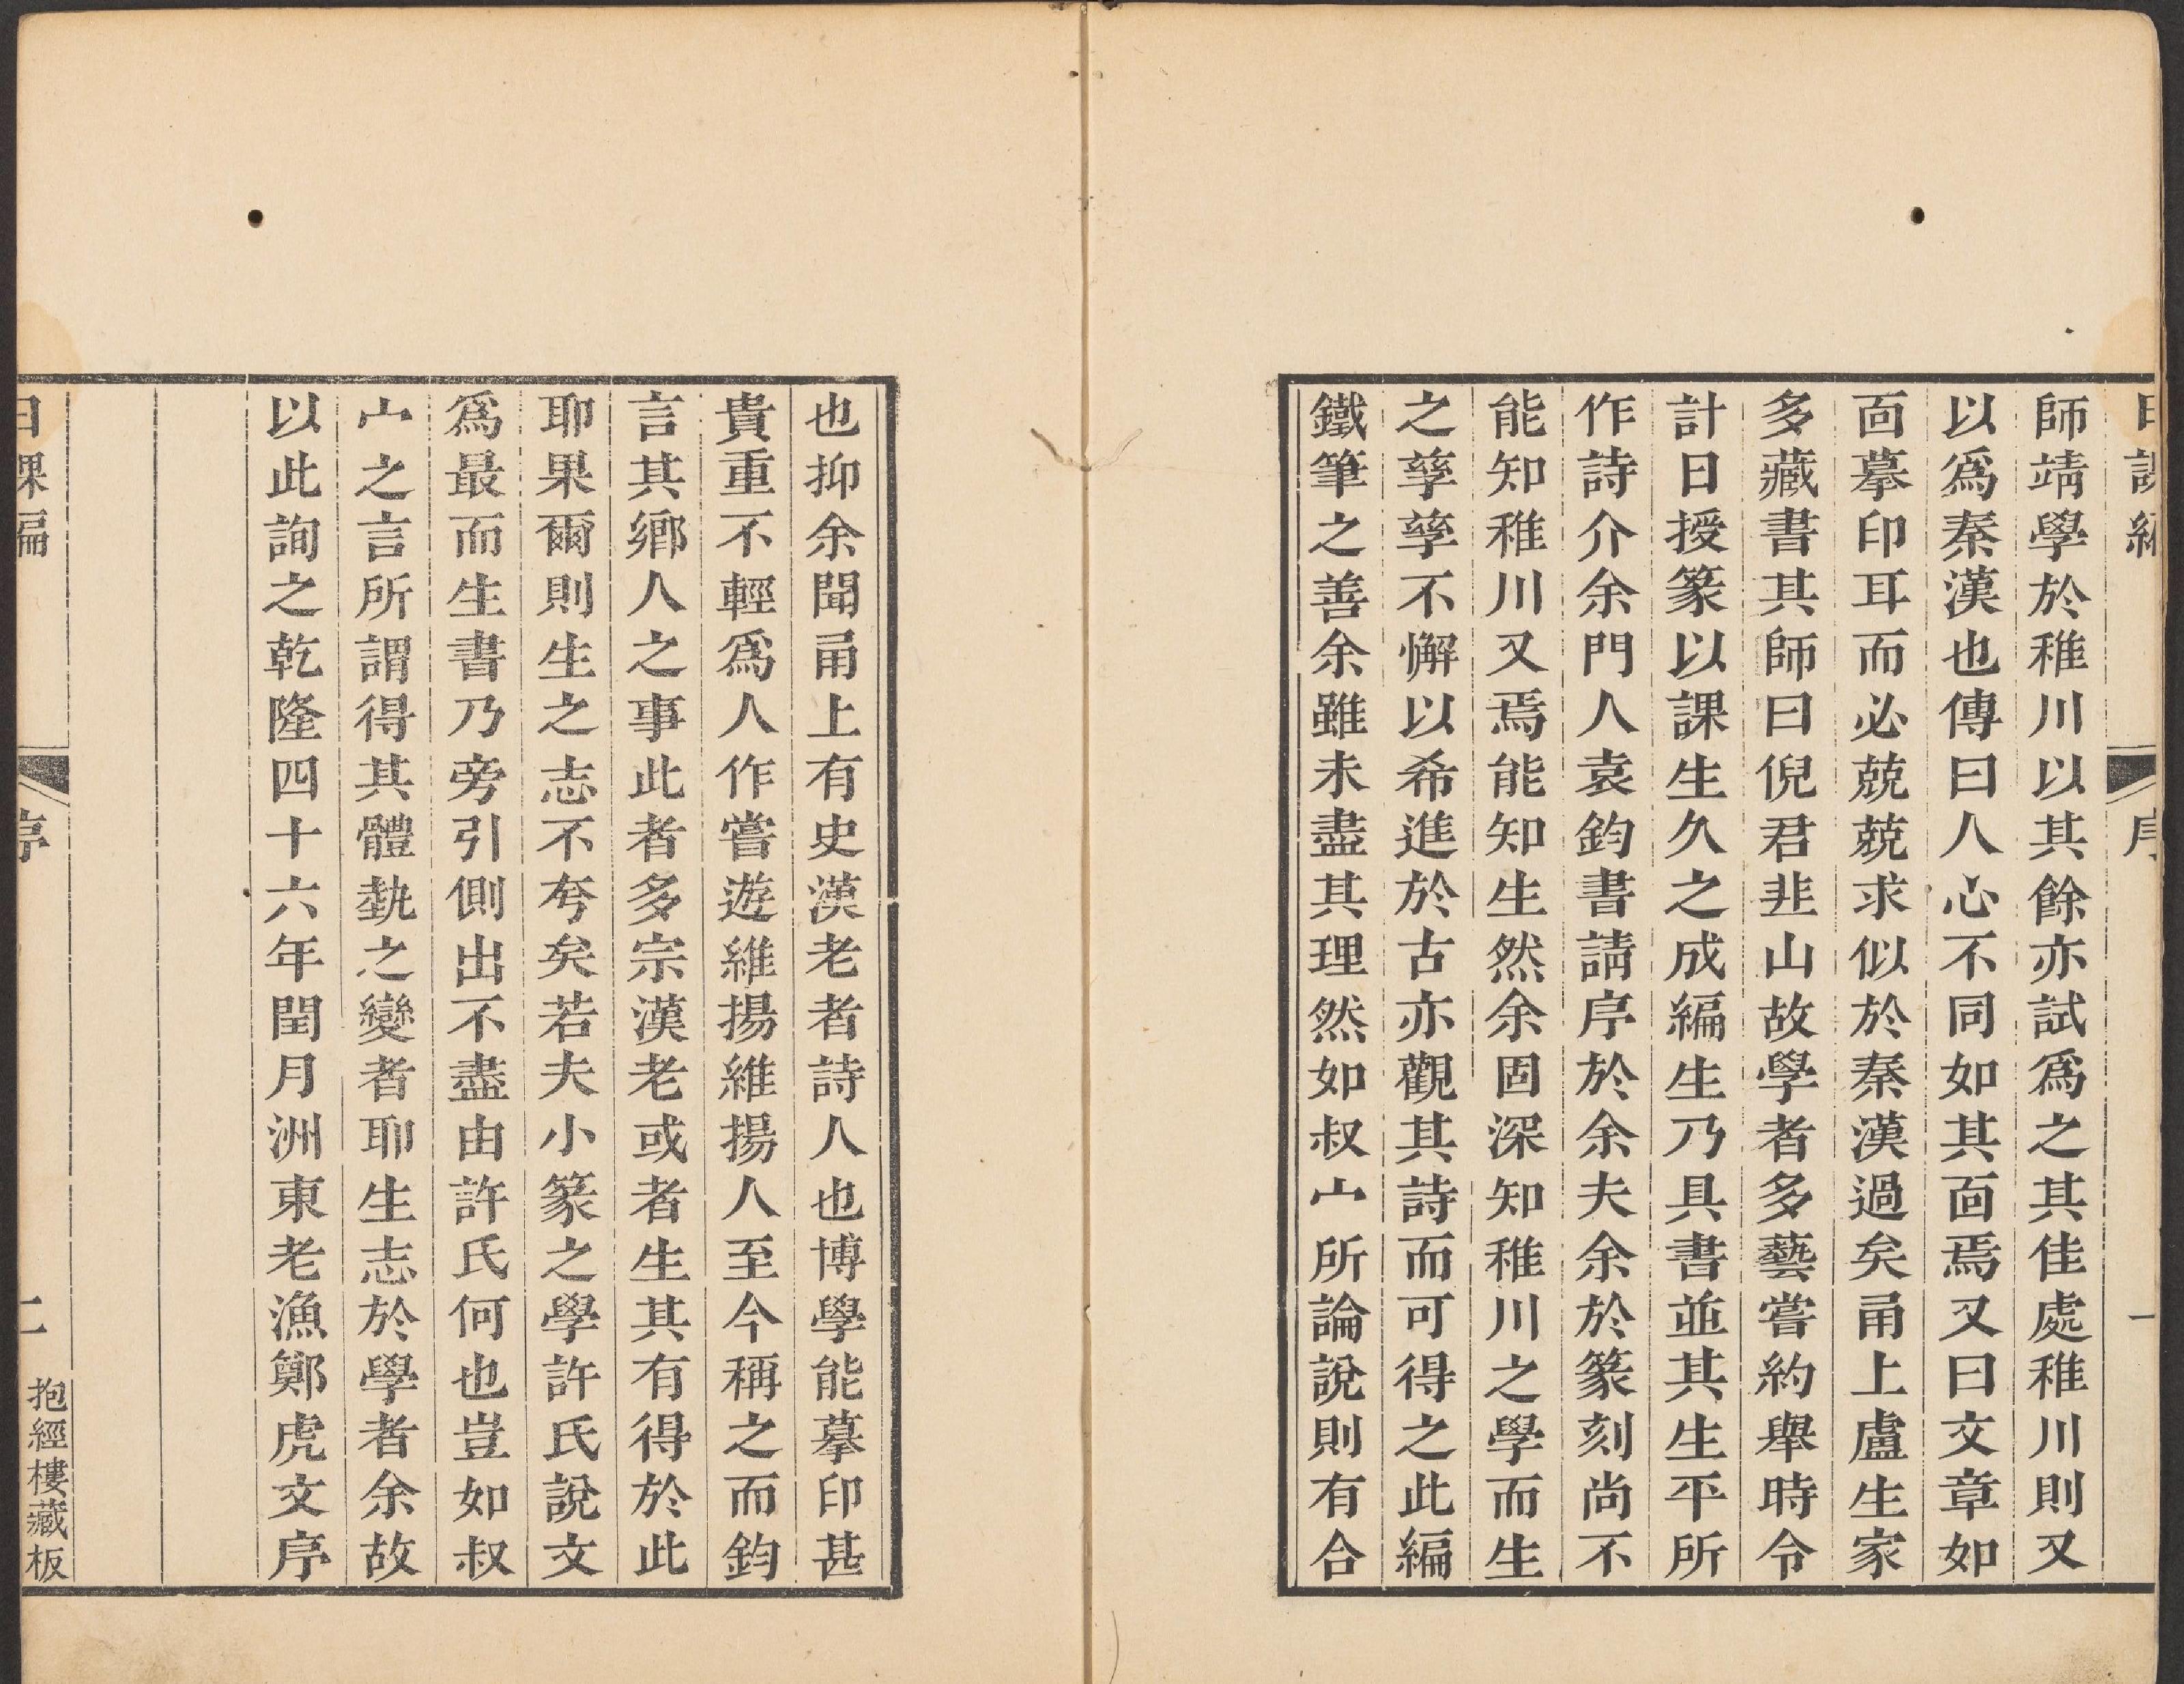 師靖學於稚川以其餘亦試爲之其佳處稚川則又
以爲秦漢也傳曰人心不同如其面焉又曰文章如
面摹印耳而必兢兢求似於秦漢過矣甬上盧生家
多藏書其師曰倪君韭山故學者多藝嘗約舉時令
計日授篆以課生久之成編生乃具書並其生平所
作詩介余門人袁鈞書請序於余夫余於篆刻尚不
能知稚川又焉能知生然余固深知稚川之學而生
之孳孳不懈以希進於古亦觀其詩而可得之此編
鐵筆之善余雖未盡其理然如叔山所論說則有合
日課編
序
一
也抑余聞甬上有史漢老者詩人也博學能摹印甚
貴重不輕爲人作嘗遊維揚維揚人至今稱之而鈞
言其鄉人之事此者多宗漢老或者生其有得於此
耶果爾則生之志不夸矣若夫小篆之學許氏說文
爲最而生書乃旁引側出不盡由許氏何也豈如叔
山之言所謂得其體埶之變者耶生志於學者余故
以此詢之乾隆四十六年閏月洲東老漁鄭虎文序
日課編
序
二
抱經樓藏板